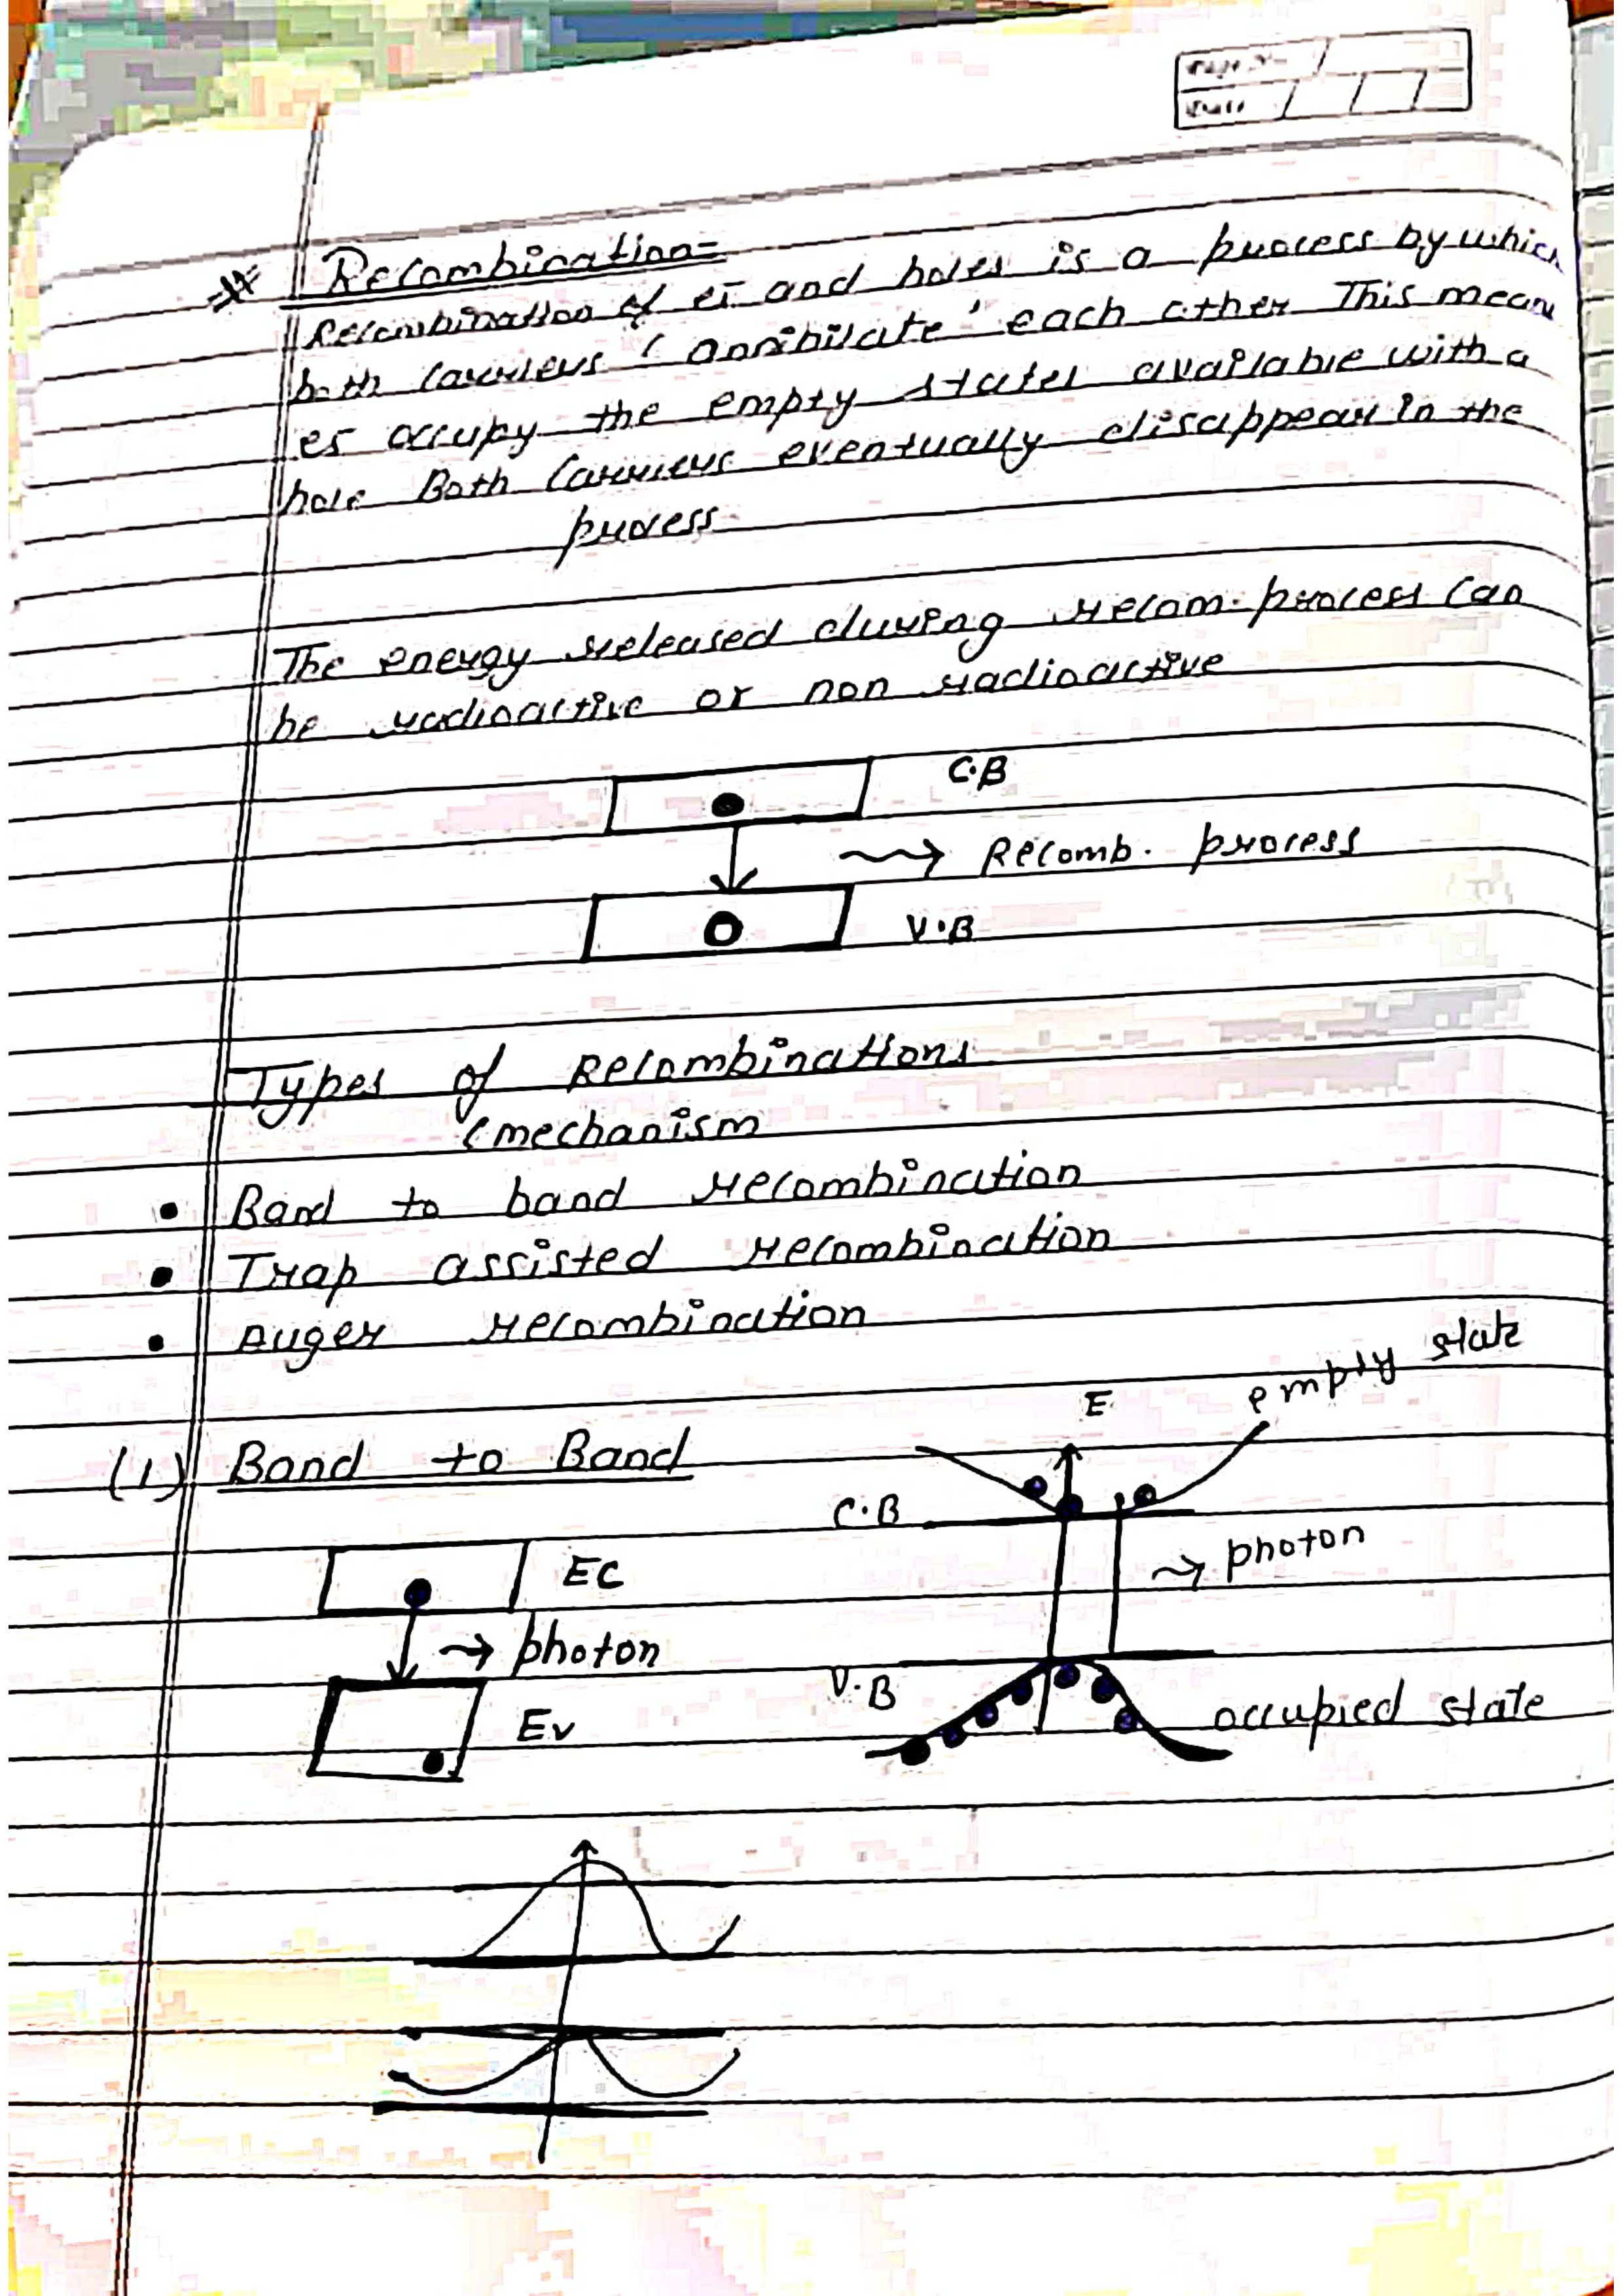 Page No.
Date
Recombination=
Recombination of es and holes is a process by which
both carriers 'annihilate' each other This mean
es occupy the empty states available with a
hole Both carriers eventually disappear in the
process.
The energy released during recom. process can
be radioactive or non radioactive
C.B
Recomb. process
V.B
Types of Recombinations
(mechanism
• Band to band recombination
• Trap assisted recombination
• Auger recombination
(1) Band to Band
E
empty state
C.B
EC
→ photon
→ photon
V.B
Ev
occupied state